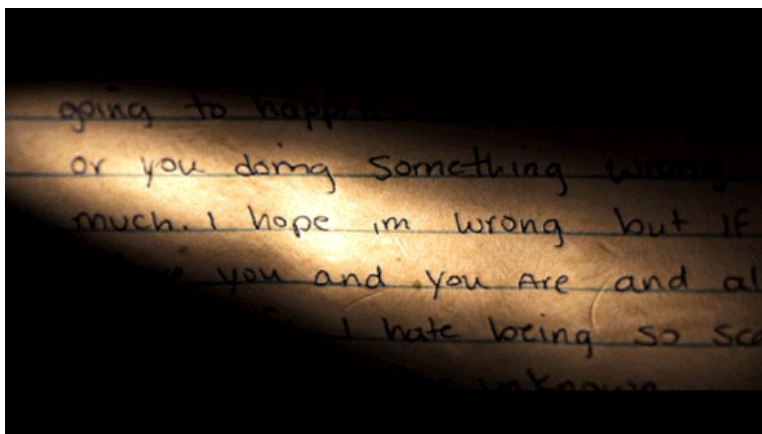 going to
or you doing something wrong
much. I hope im wrong but IF
you and you Are and
I hate being so
unknown